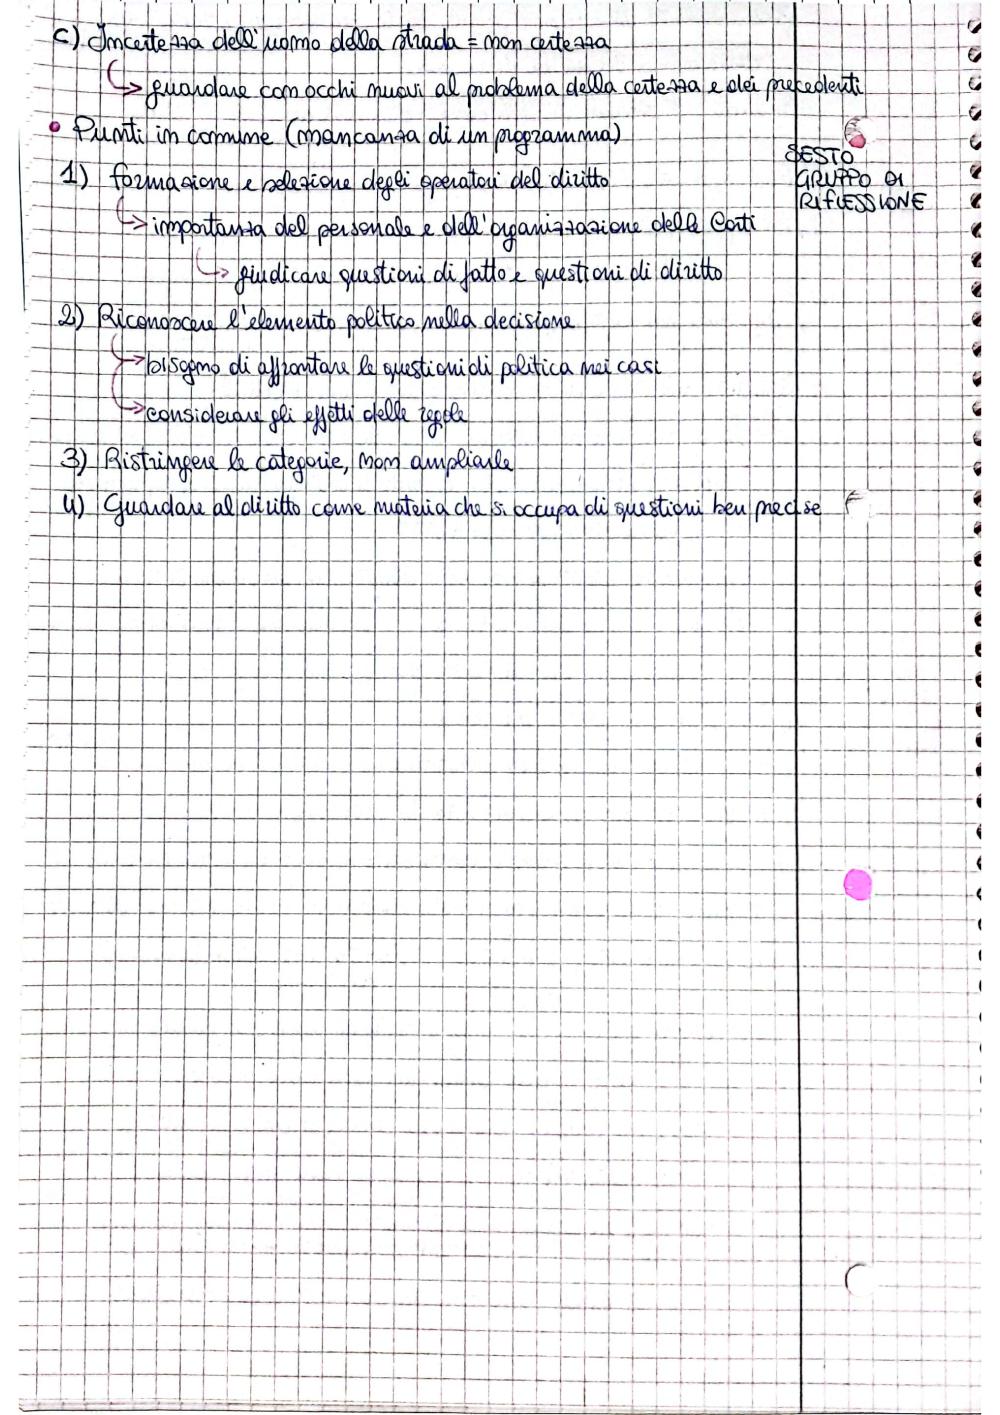 c) Incertezza dell'uomo della strada = non certezza
↳ guardare con occhi nuovi al problema della certezza e dei precedenti
• Punti in comune (mancanza di un programma)
SESTO
GRUPPO DI
RIFLESSIONE
1) formazione e selezione degli operatori del diritto
↳ importanza del personale e dell'organizzazione delle Corti
↳ giudicare questioni di fatto e questioni di diritto
2) Riconoscere l'elemento politico nella decisione
↳ bisogno di affrontare le questioni di politica nei casi
↳ considerare gli effetti delle regole
3) Ristringere le categorie, non ampliarle
4) Guardare al diritto come materia che si occupa di questioni ben precise